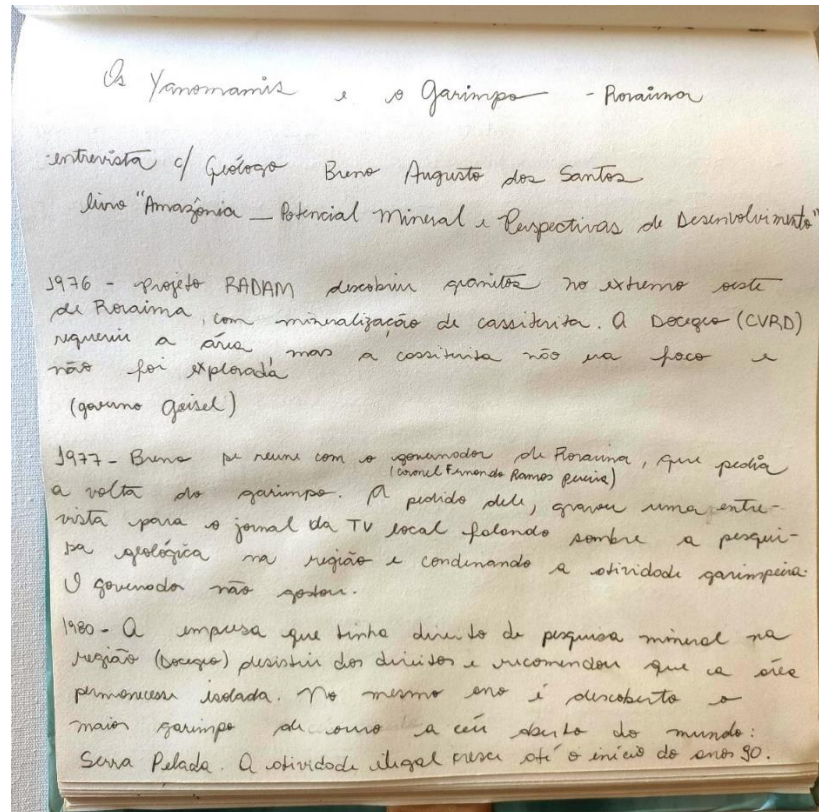 Os Yanomamis e o Garimpo - Roraima
entrevista c/ Geólogo Breno Augusto dos Santos
livro "Amazônia - Potencial Mineral e Perspectivas de Desenvolvimento"
1976 - projeto RADAM descobriu granitos no extremo oeste
de Roraima, com mineralização de cassiterita. A Docegeo (CVRD)
requeriu a área, mas a cassiterita não era foco e
não foi explorada
(governo Geisel)
1977 - Breno se reune com o governador de Roraima, que pedia
(coronel Fernando Ramos Pereira)
a volta do garimpo. A pedido dele, gravou uma entre-
vista para o jornal da TV local falando sombre a pesqui-
sa geológica na região e condenando a atividade garimpeira.
O governador não gostou.
1980 - A empresa que tinha direito de pesquisa mineral na
região (Docegeo) desistiu dos direitos e recomendou que a área
permanecesse isolada. No mesmo ano é descoberto o
maior garimpo de ouro a céu aberto do mundo:
Serra Pelada. A atividade ilegal cresce até o início do anos 90.